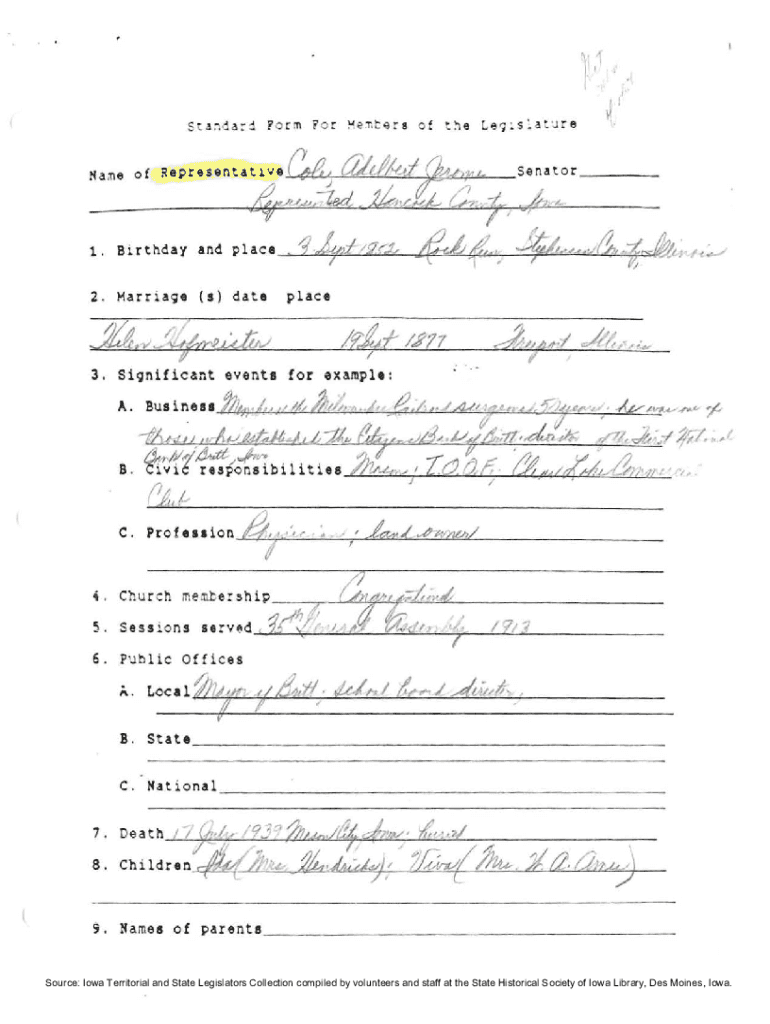 Standard Form For Members of the Legislature
Name of Representative Cole, Adelbert Jerome Senator
Represented Hancock County, Iowa
1. Birthday and place 3 Sept 1852 Rock Run, Stephenson County, Illinois
2. Marriage (s) date place
Helen Hofmeister 19 Sept 1877 Freeport, Illinois
3. Significant events for example:
A. Business Member of the Milwaukee Railroad surgeons, 50 years; he was one of
those who established the Citizens Bank of Britt; director of the First National
Bank of Britt, Iowa
B. Civic responsibilities Mason; I.O.O.F.; Clear Lake Commercial
Club
C. Profession Physician; land owner
4. Church membership Congregational
5. Sessions served 35th General Assembly 1913
6. Public Offices
A. Local Mayor of Britt; school board director;
B. State
C. National
7. Death 17 July 1939 Mason City, Iowa; buried
8. Children Ida (Mrs. Hendricks); Viva (Mrs. W. A. Ames)
9. Names of parents
Source: Iowa Territorial and State Legislators Collection compiled by volunteers and staff at the State Historical Society of Iowa Library, Des Moines, Iowa.